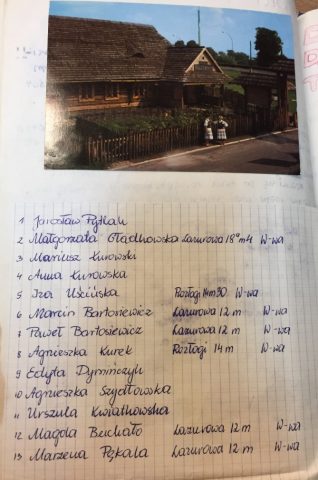 1 Jarosław Pytlak
2 Małgorzata Gładkowska Lazurowa 18ᵃ m4 W-wa
3 Mariusz Kurowski
4 Anna Kurowska
5 Iza Uścińska Rozłogi 90 W-wa
6 Marcin Bartosiewicz Lazurowa 12 m W-wa
7 Paweł Bartosiewicz Lazurowa 12 m W-wa
8 Agnieszka Kurek Rozłogi 14 m W-wa
9 Edyta Dymińczyk
10 Agnieszka Szydłowska
11 Urszula Kwiatkowska
12 Magda Beichało Lazurowa 12 m W-wa
13 Marzena Pękala Lazurowa 12 m W-wa